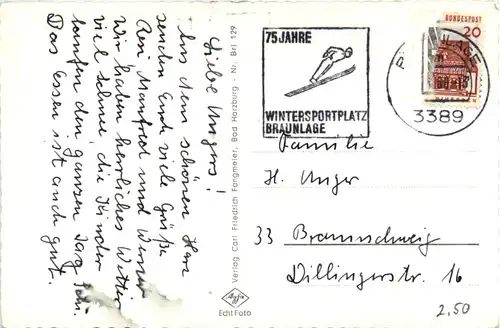 Liebe Ungers!
Aus dem schönen Harz
senden Euch viele Grüße
Manfred und Werner
Wir haben herrliches Wetter
viel Schnee, die Kinder
laufen den ganzen Tag Ski.
Das Essen ist auch gut.
Verlag Carl Friedrich Fangmeier, Bad Harzburg - Nr. Brl 129
Agfa
Echt Foto
75 JAHRE
WINTERSPORTPLATZ
BRAUNLAGE
3389
BUNDESPOST
20
Familie
H. Unger
33 Braunschweig
Dillingerstr. 16
2,50